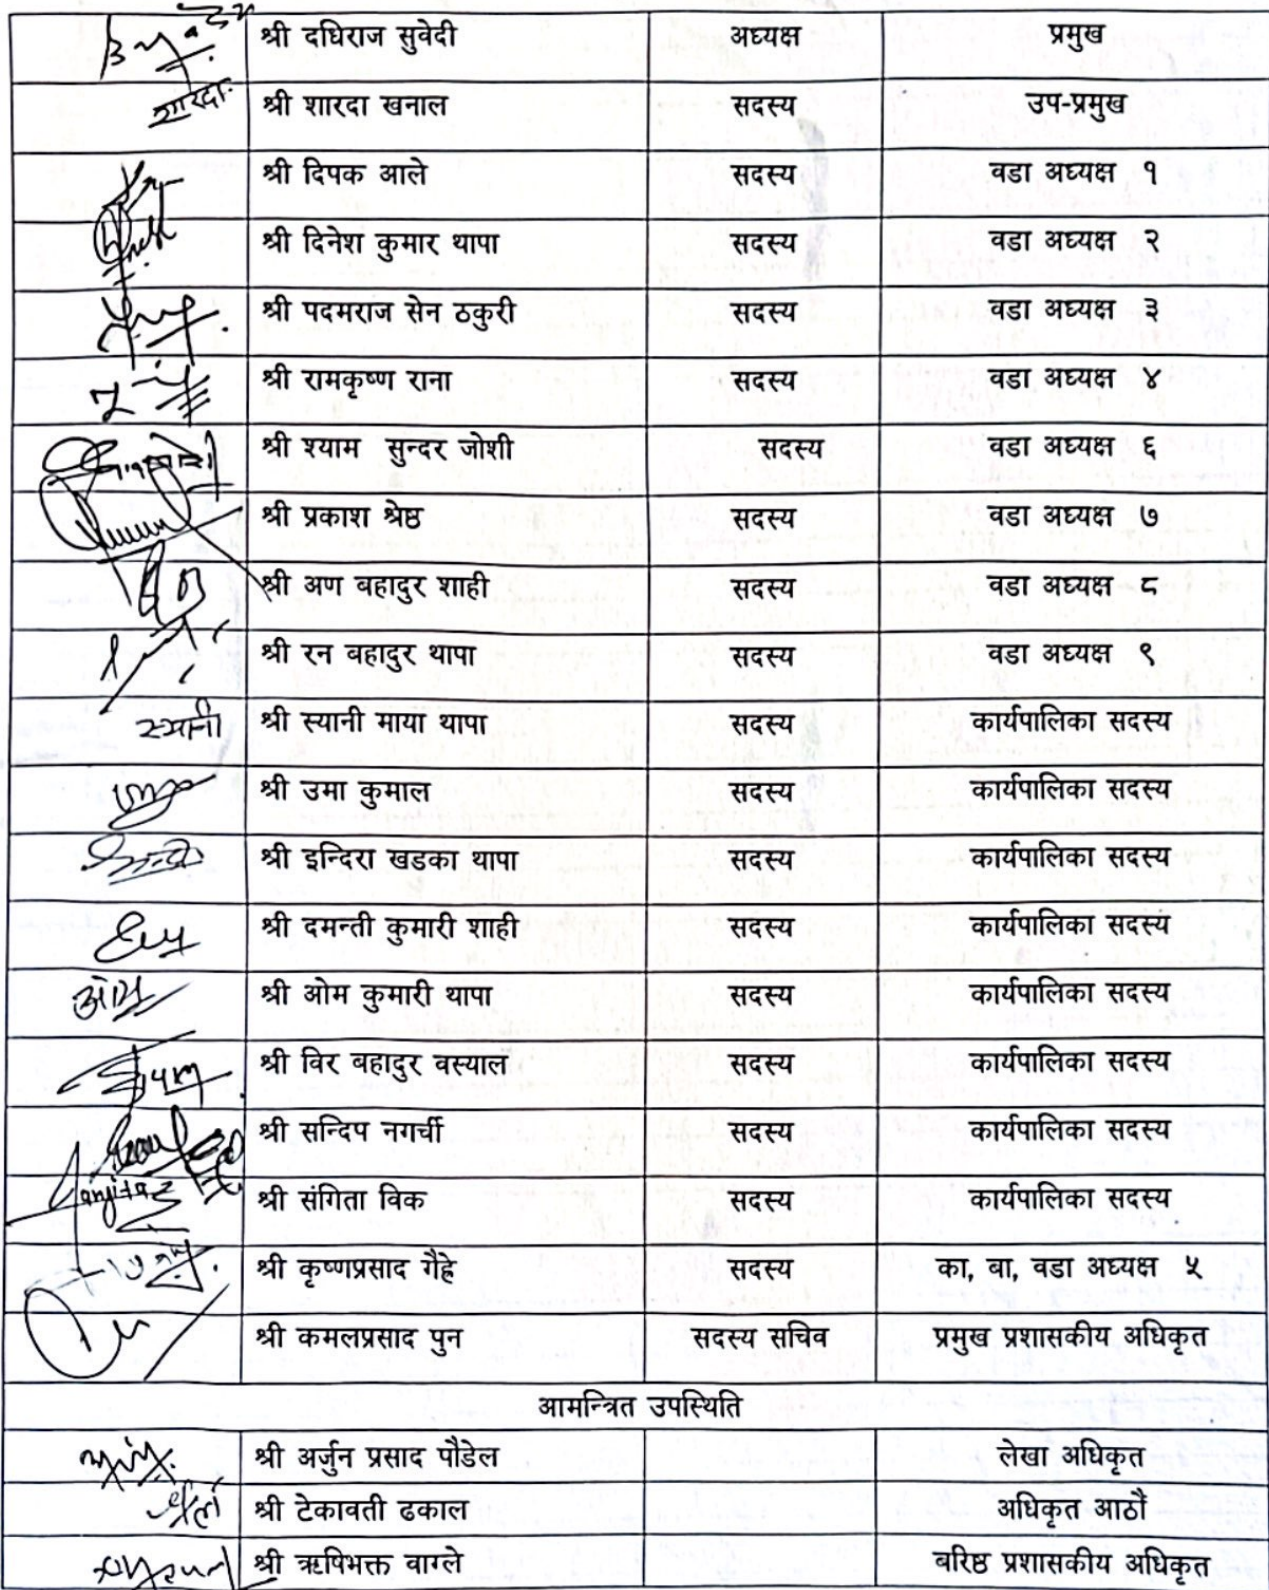 श्री दधिराज सुवेदी अध्यक्ष प्रमुख
शारदा श्री शारदा खनाल सदस्य उप-प्रमुख
श्री दिपक आले सदस्य वडा अध्यक्ष १
श्री दिनेश कुमार थापा सदस्य वडा अध्यक्ष २
श्री पदमराज सेन ठकुरी सदस्य वडा अध्यक्ष ३
श्री रामकृष्ण राना सदस्य वडा अध्यक्ष ४
श्री श्याम सुन्दर जोशी सदस्य वडा अध्यक्ष ६
श्री प्रकाश श्रेष्ठ सदस्य वडा अध्यक्ष ७
श्री अण बहादुर शाही सदस्य वडा अध्यक्ष ८
श्री रन बहादुर थापा सदस्य वडा अध्यक्ष ९
स्यानी श्री स्यानी माया थापा सदस्य कार्यपालिका सदस्य
श्री उमा कुमाल सदस्य कार्यपालिका सदस्य
श्री इन्दिरा खडका थापा सदस्य कार्यपालिका सदस्य
श्री दमन्ती कुमारी शाही सदस्य कार्यपालिका सदस्य
ओम श्री ओम कुमारी थापा सदस्य कार्यपालिका सदस्य
श्री विर बहादुर वस्याल सदस्य कार्यपालिका सदस्य
श्री सन्दिप नगर्ची सदस्य कार्यपालिका सदस्य
श्री संगिता विक सदस्य कार्यपालिका सदस्य
श्री कृष्णप्रसाद गैह्रे सदस्य का, बा, वडा अध्यक्ष ५
श्री कमलप्रसाद पुन सदस्य सचिव प्रमुख प्रशासकीय अधिकृत
आमन्त्रित उपस्थिति
श्री अर्जुन प्रसाद पौडेल लेखा अधिकृत
श्री टेकावती ढकाल अधिकृत आठौ
श्री ऋषिभक्त वाग्ले बरिष्ठ प्रशासकीय अधिकृत